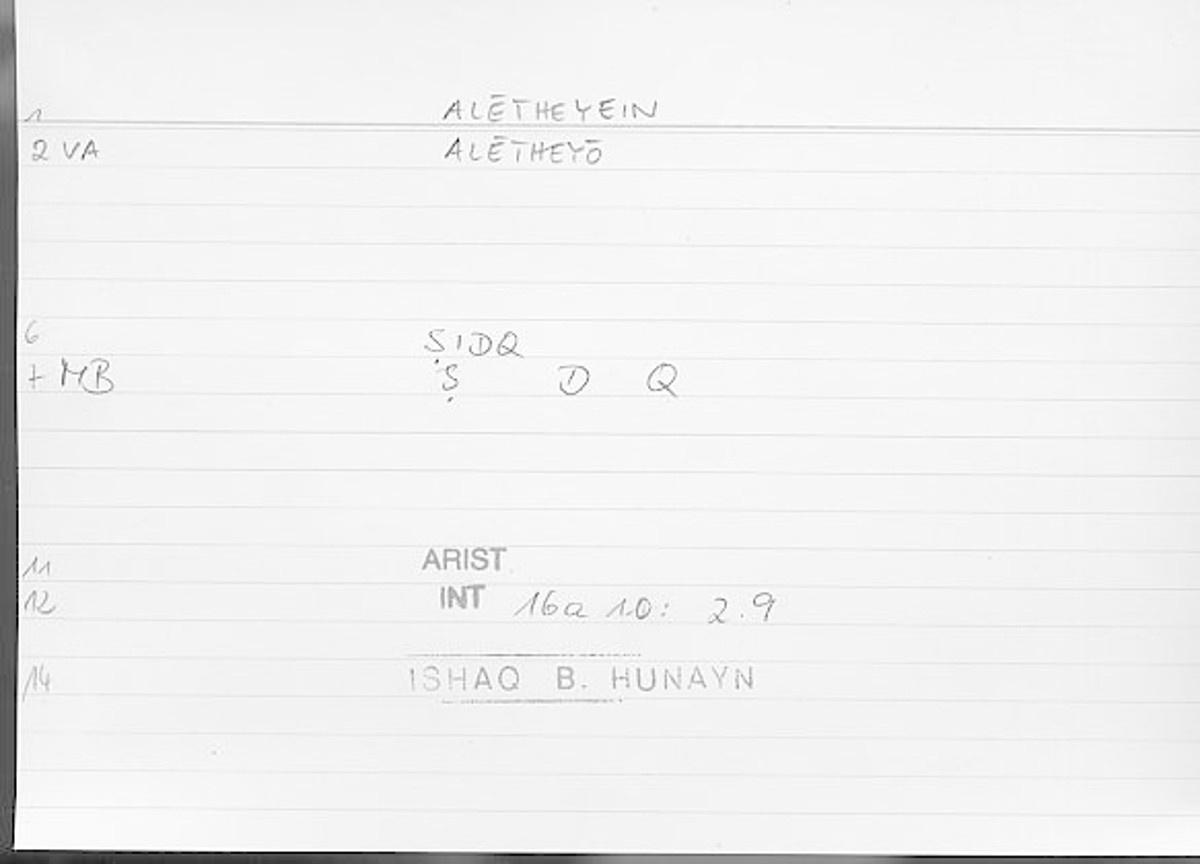 1 ALĒTHEYEIN
2 VA ALĒTHEYŌ
6 ṢIDQ
7 MB Ṣ D Q
11 ARIST
12 INT 16a 10: 2.9
14 ISHAQ B. HUNAYN